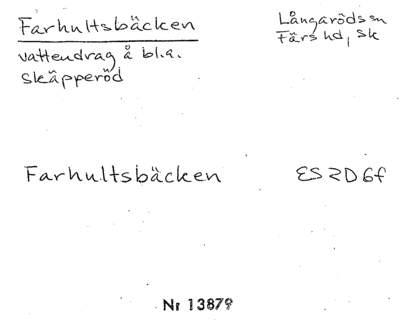 Farhultsbäcken
Långaröds sn
Färs hd, Sk
vattendrag å bl.a.
Skäpperöd
Farhultsbäcken
ES 2D6f
Nr 13879